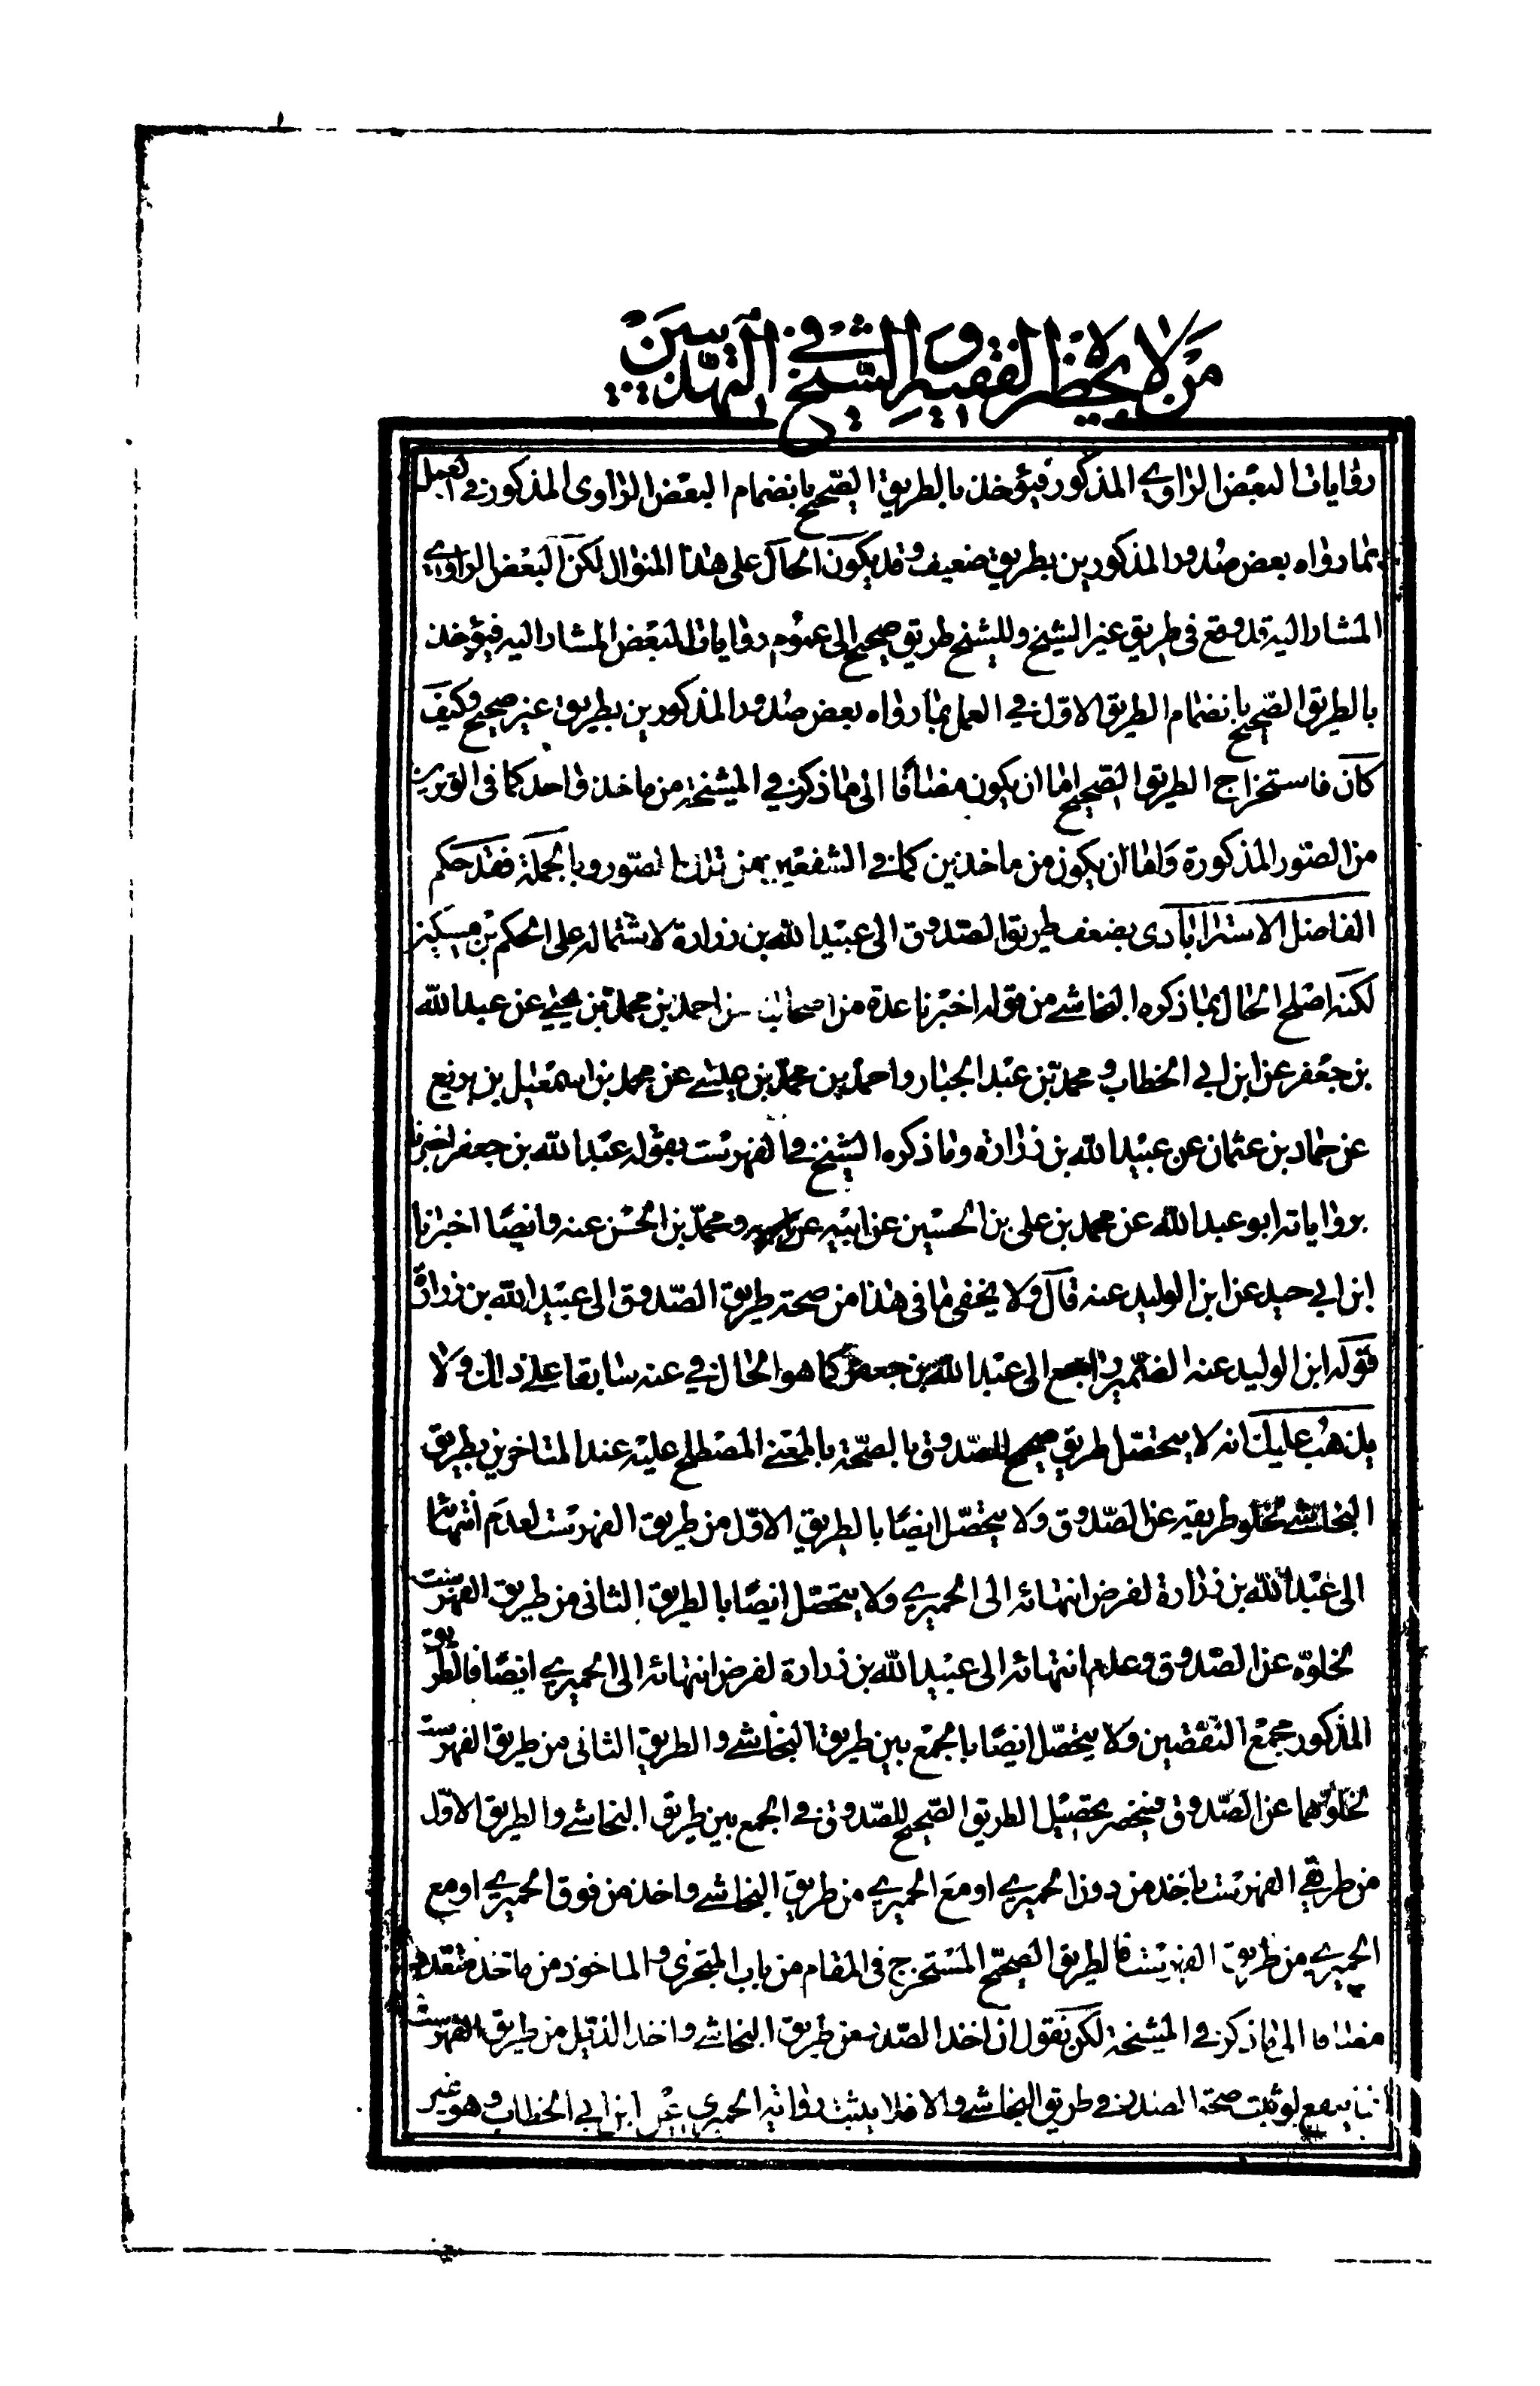 من لا يحضر الفقيه و الشيخ في التهذيبين
روايات البعض الراوي المذكور فيؤخذ بالطريق الصّحيح بانضمام البعض الراوى المذكور في العمل
بما رواه بعض صدور المذكورين بطريق ضعيف وقد يكون الحال على هذا المنوال لكن البعض الراوي
المشار اليه قد وقع في طريق غير الشيخ وللشيخ طريق صحيح الى عموم روايات البعض المشار اليه فيؤخذ
بالطريق الصّحيح بانضمام الطريق الاوّل في العمل بما رواه بعض صدور المذكورين بطريق غير صحيح وكيف
كان فاستخراج الطريق الصّحيح اما ان يكون مضافا الى ما ذكر في المشيخة من ماخذ واحد كما فى الوتريـ
من الصّور المذكورة واما ان يكون من ماخذين كما في الشفعيـ من تلك الصّور وبالجملة فقد حكم
الفاضل الاسترابادى بضعف طريق الصّدوق الى عبيد الله بن زرارة لاشتماله على الحكم بن مسكين
لكنه اصلح الحال بما ذكره النجاشي من قوله اخبرنا عدة من اصحابنا عن احمد بن محمّد بن يحيى عن عبد الله
بن جعفر عن ابن ابي الخطاب و محمّد بن عبد الجبار واحمد بن محمّد بن عيسى عن محمد بن اسمعيل بن بزيع
عن حماد بن عثمان عن عبيد الله بن زرارة وما ذكره الشيخ في الفهرست بقوله عبد الله بن جعفر اخبرنا
برواياته ابو عبد الله عن محمد بن على بن الحسين عن ابيه و محمّد بن الحسن عنه وايضًا اخبرنا
ابن ابي جيد عن ابن الوليد عنه قال ولا يخفى ما فى هذا من صحة طريق الصّدوق الى عبيد الله بن زرارة
قوله ابن الوليد عنه الضّمير راجع الى عبد الله بن جعفر كما هو الحال في عنه سابقا على ذلك ولا
يذهب عليك انه لا يتحصّل طريق صحيح للصّدوق بالصّحة بالمعنى المصطلح عليه عند المتاخرين بطريق
النجاشي لخلو طريقه عن الصّدوق ولا يتحصّل ايضًا بالطريق الاوّل من طريق الفهرست لعدم انتهائه
الى عبيد الله بن زرارة لفرض انتهائه الى الحميري ولا يتحصّل ايضًا بالطريق الثانى من طريق الفهرست
لخلوّه عن الصّدوق وعدم انتهائه الى عبيد الله بن زرارة لفرض انتهائه الى الحميري ايضًا فالطريق
المذكور مجمع النّقصين ولا يتحصّل ايضًا بالجمع بين طريق النجاشي والطريق الثانى من طريق الفهرست
لخلوّهما عن الصّدوق فينحصر تحصيل الطريق الصّحيح للصّدوق في الجمع بين طريق النجاشي والطريق الاوّل
من طريقي الفهرست باخذ من دون الحميري او مع الحميري من طريق النجاشي واخذ من فوق الحميري او مع
الحميري من طريق الفهرست فالطريق الصحيح المستخرج فى المقام من باب المتجزى والماخوذ من ماخذ متعدد
مضافا الى ما ذكر في المشيخة لكن نقول ان اخذ الصّدر من طريق النجاشي واخذ الذيل من طريق الفهرست
انما ينفع لو ثبت صحة الصدر في طريق النجاشي والا فلا يثبت رواية الحميري عن ابن ابي الخطاب وهو غير